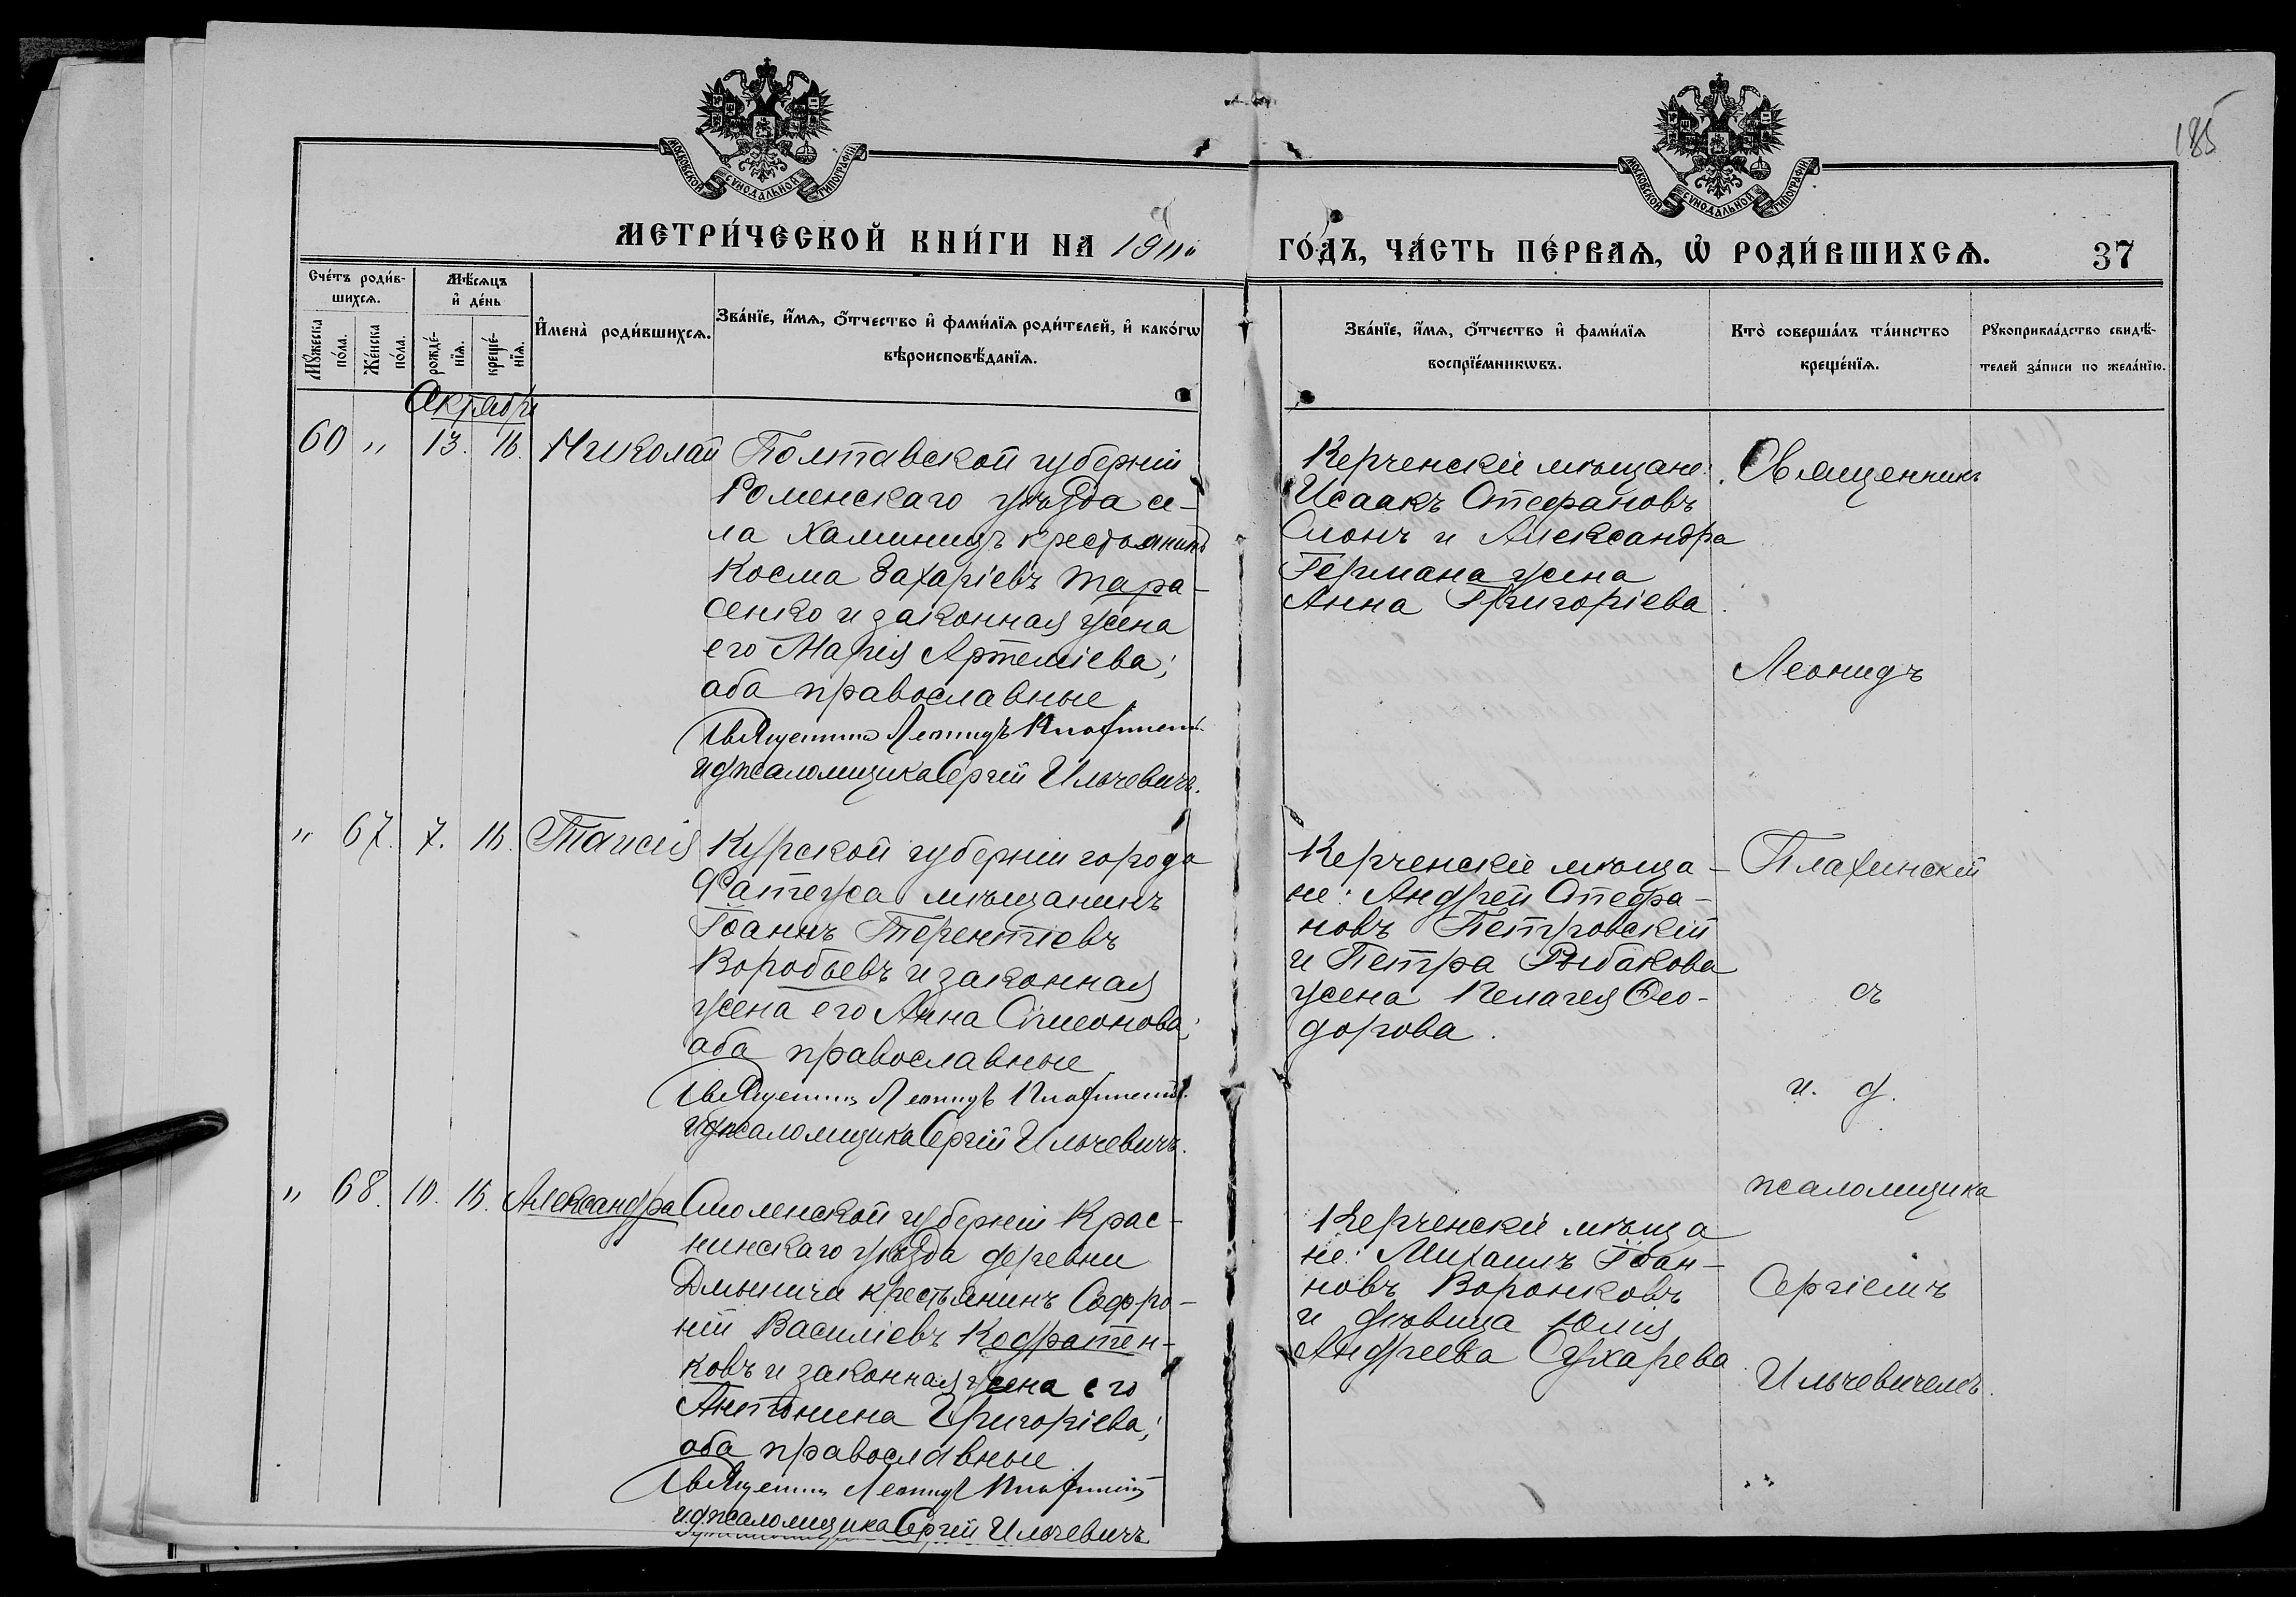 185
МОСКОВСКОЙ СУНОДАЛЬНОЙ ТИПОГРАФІИ
МОСКОВСКОЙ СУНОДАЛЬНОЙ ТИПОГРАФІИ
МЕТРИ́ЧЕСКОЙ КНИ́ГИ НА 1911 ГО́ДЪ, ЧА́СТЬ ПЕ́РВАѦ, Ѡ҆ РОДИ́ВШИХСѦ. 37
Сче́тъ роди́в-
шихсѧ.
Мꙋ́жеска по́ла.
Же́нска по́ла.
Мѣ́сѧцъ
и҆ де́нь
рожде́-нїѧ.
креще́-нїѧ.
И҆мена̀ роди́вшихсѧ.
Зва́нїе, и҆́мѧ, о҆́тчество и҆ фами́лїѧ роди́телей, и҆ како́гѡ
вѣроисповѣ́данїѧ.
Зва́нїе, и҆́мѧ, о҆́тчество и҆ фами́лїѧ
воспрїе́мникѡвъ.
Кто̀ соверша́лъ та́инство
креще́нїѧ.
Рꙋкоприкла́дство свидѣ́-
телей за́писи по жела́нїю.
Октябрь
60 " 13. 16. Николай
Полтавской губерніи
Роменскаго уѣзда се-
ла крестьянинъ
Косма Захаріевъ Тара-
сенко и законная жена
его Марія Артеміева;
оба православные
Священникъ Леонидъ Плахинскій
и д псаломщика Сергій Ильчевичъ.
Керченскіе мѣщане:
Исаакъ Стефановъ
Слонъ и Александра
Германа жена
Анна Григоріева.
Священникъ
Леонидъ
" 67. 7. 16. Таисія
Курской губерніи города
Фатежа мѣщанинъ
Іоаннъ Терентіевъ
Воробьевъ и законная
жена его Анна Симеонова;
оба православные
Священникъ Леонидъ Плахинскій.
и д псаломщика Сергій Ильчевичъ.
Керченскіе мѣща-
не: Андрей Стефа-
новъ Петровскій
и Петра Рыбакова
жена Пелагея Ѳео-
дорова.
Плахинскій
съ
и. д.
псаломщика
" 68. 10. 16. Александра
Смоленской губерніи Крас-
нинскаго уѣзда деревни
крестьянинъ Софро-
ній Василіевъ Кодратен-
ковъ и законная жена его
Антонина Григоріева;
оба православные
Священникъ Леонидъ Плахинскій
и.д. псаломщика Сергій Ильчевичъ
Керченскіе мѣща
не: Михаилъ Іоан-
новъ Воронковъ
и дѣвица Юлія
Андреева Сухарева.
Сергіемъ
Ильчевичемъ.